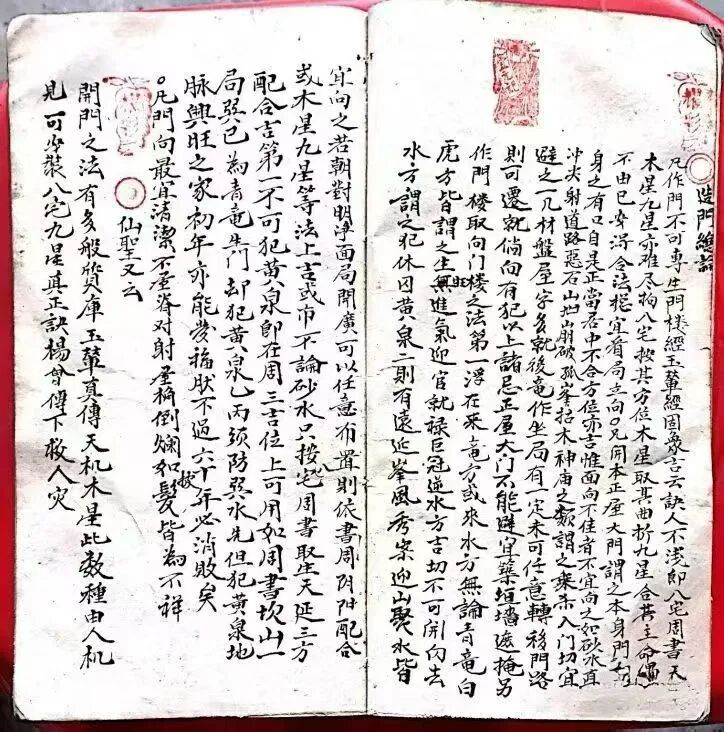 造門總論
凡作門不可專生門楼經玉輦經固象吉云誤人不浅即八宅周書天
木星九星亦难尽拘八宅按其方位木星取其曲折九星合其主命
不由巳安得令法梍宜看局立向凡開本正屋大門謂之本身門
身之有口自是正當居中不合方位亦吉惟面向不佳者不宜向之如砂水直
冲尖射道路惡石山凹崩破孤峯枯木神庙之類謂之乘杀入門切宜
避之一凡材盤屋字多就後竜作坐局有一定未可任意轉移門路
則可遷就倘向有犯以上諸忌正屋大门不能避宜築垣墻遮掩另
作門楼取向门楼之法第一浮在來竜方或來水方無論青竜白
虎方皆謂之生旺無進氣迎官就禄巨冠逆水方吉切不可開向去
水方謂之犯休囚黄八泉二則有遠近峯風秀案迎山聚水皆
宜向之若朝對明淨面局開廣可以任意布置則依書周阴阳配合
或木星九星等法上吉或巾不論砂水只按八宅周書取生天延三方
配合吉第一不可犯黄八泉即在周三吉位上可用如周書坎山一
局巽巳為青竜生門却犯黄八泉乙丙須防巽水先但犯黄泉地
脉興旺之家初年亦能發福肤不過六十年必消敗矣
凡門向最宜清潔不屋脊对射屋桷倒爛如髮皆為不祥
仙聖又云
開門之法有多般質庫玉輦真傳天机木星此数種由人机
見可步裝八宅九星真正訣楊曾傳下救人灾